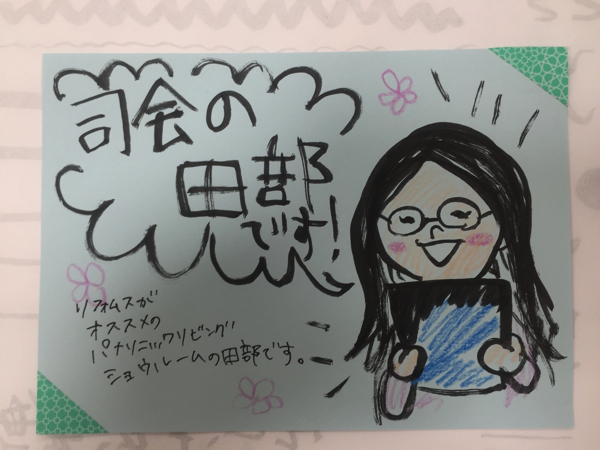 司会の
田部
です!
リフォムスが
オススメの
パナソニックリビング
ショウルームの田部です。